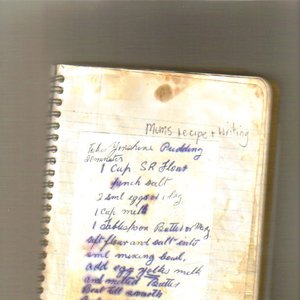 Mums recipe + Writing
Yorkshire Pudding
1 Cup SR Flour
pinch salt
2 sml eggs or 1 lg
1 Cup milk
1 Tablespoon Butter or Marg
sift flour and salt into
sml mixing bowl,
add egg yolks milk
and melted Butter
Beat till smooth